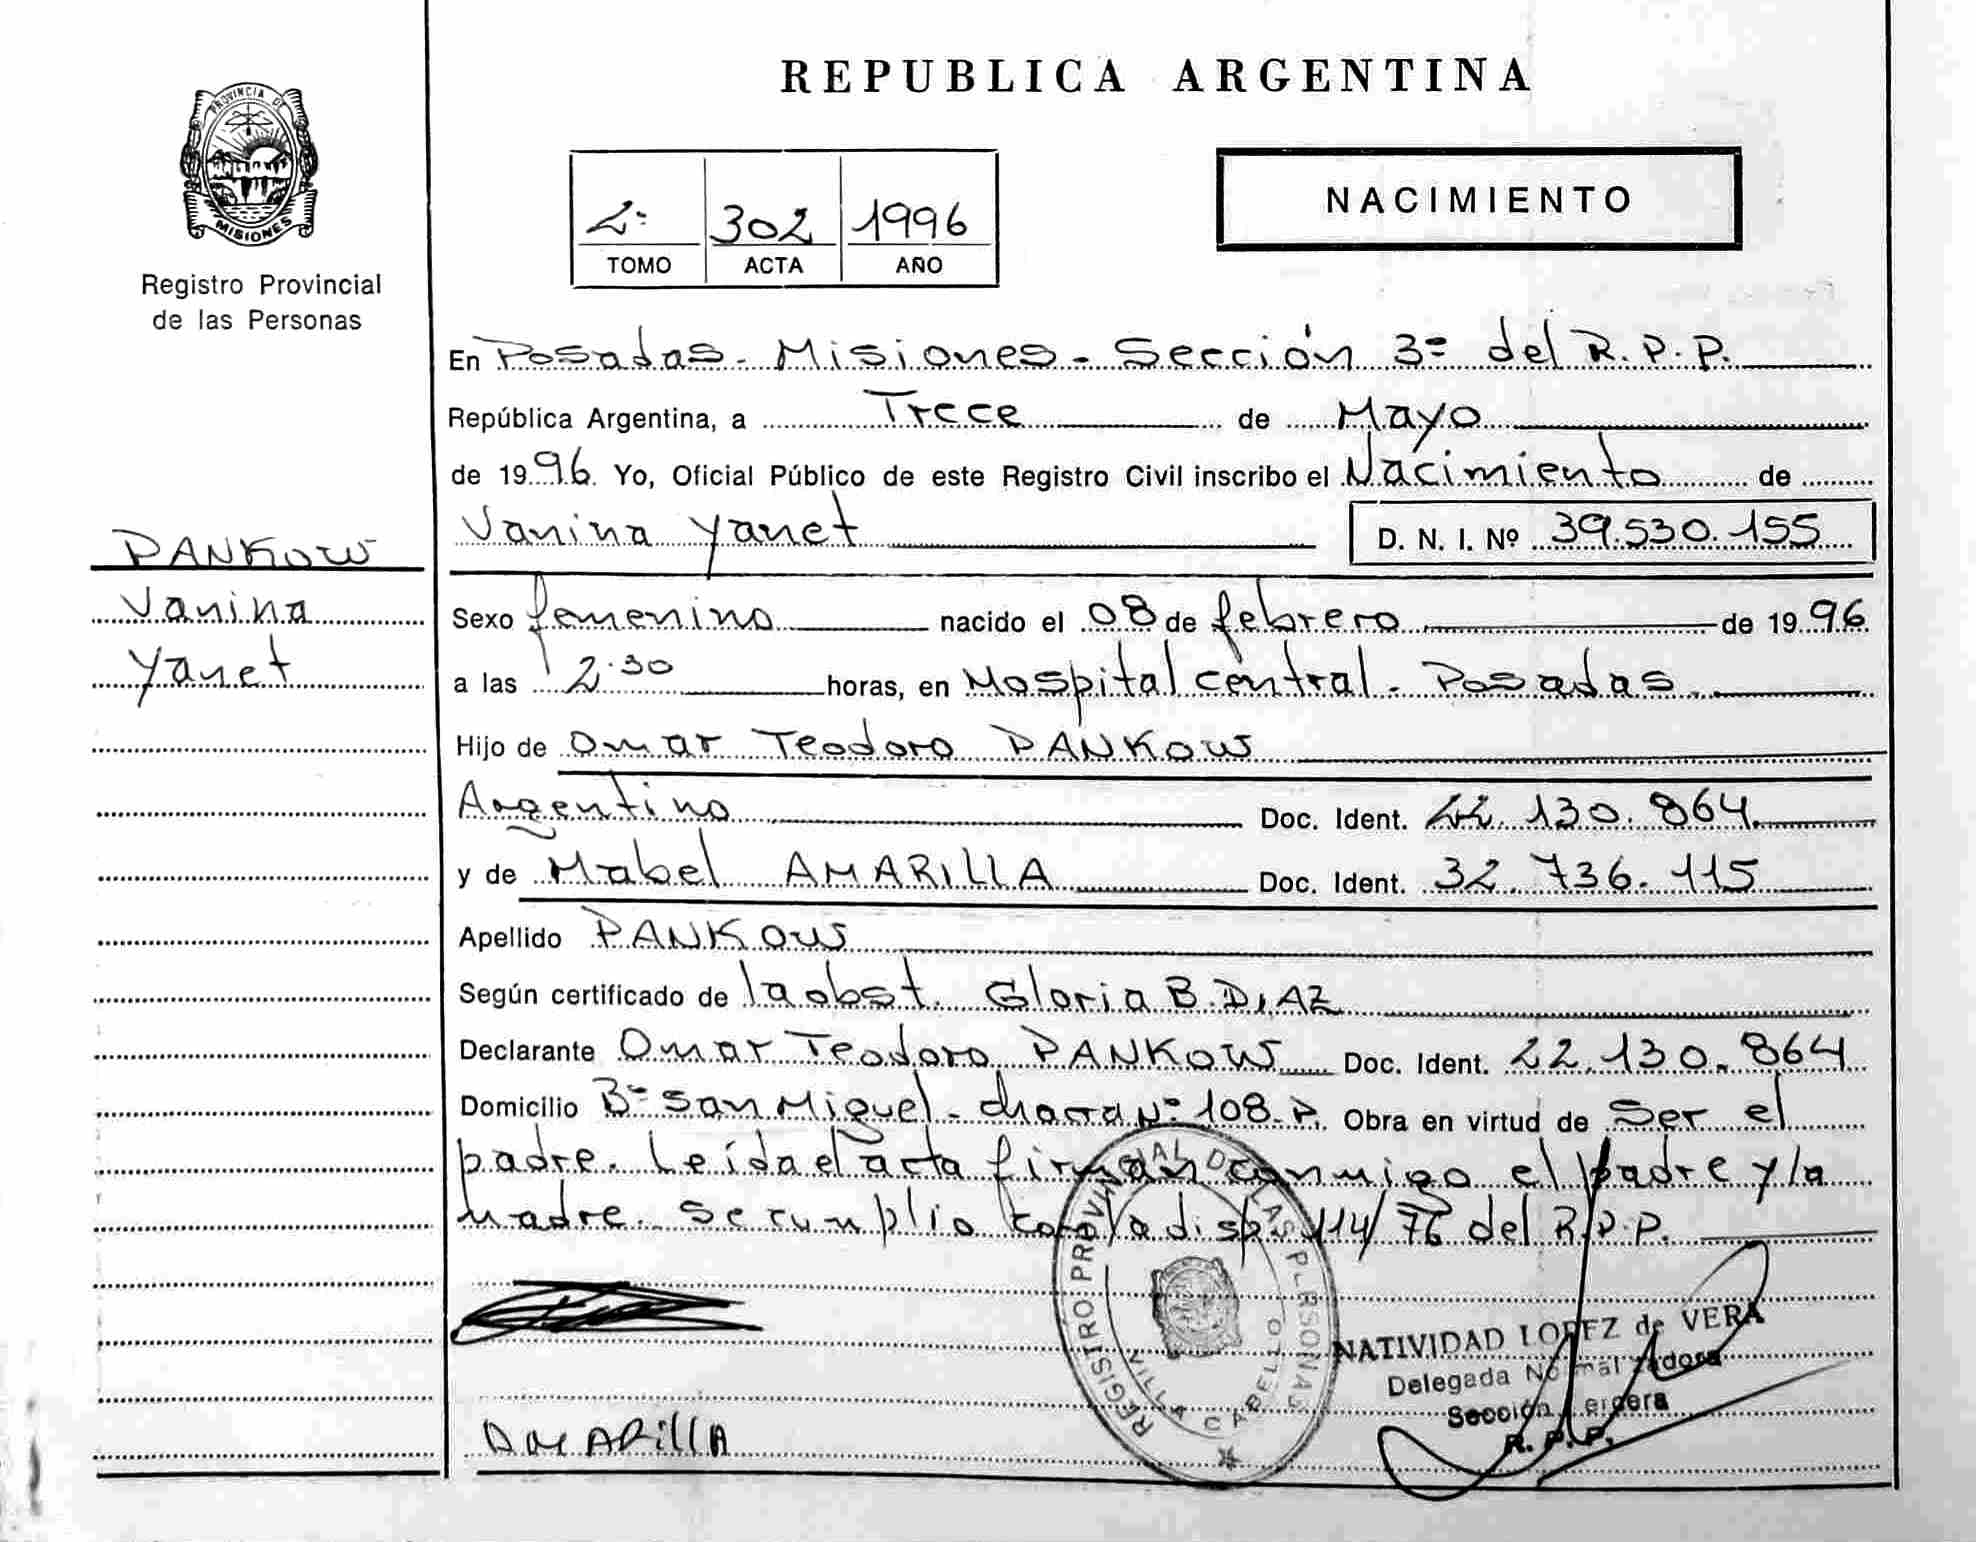 REPUBLICA ARGENTINA
PROVINCIA DE
MISIONES
Registro Provincial
de las Personas
2º 302 1996
TOMO ACTA AÑO
NACIMIENTO
En Posadas - Misiones - Sección 3º del R.P.P.
República Argentina, a Trece de Mayo
de 1996. Yo, Oficial Público de este Registro Civil inscribo el Nacimiento de
Vanina Yanet D. N. I. Nº 39.530.155
PANKOW
Vanina
Yanet
Sexo femenino nacido el 08 de febrero de 1996
a las 2.30 horas, en Hospital central - Posadas
Hijo de Omar Teodoro PANKOW
Argentino Doc. Ident. 22.130.864
y de Mabel AMARILLA Doc. Ident. 32.736.115
Apellido PANKOW
Según certificado de la obst. Gloria B. DIAZ
Declarante Omar Teodoro PANKOW Doc. Ident. 22.130.864
Domicilio Bº San Miguel - chacra Nº 108-P. Obra en virtud de Ser el
padre. Leída el acta firman conmigo el padre y la
madre. Se cumplio con la disp. 114/76 del R.P.P.
REGISTRO PROVINCIAL DE LAS PERSONAS
VILLA CABELLO
NATIVIDAD LOPEZ de VERA
Delegada Normalizadora
Sección Tercera
R. P. P.
AMARILLA